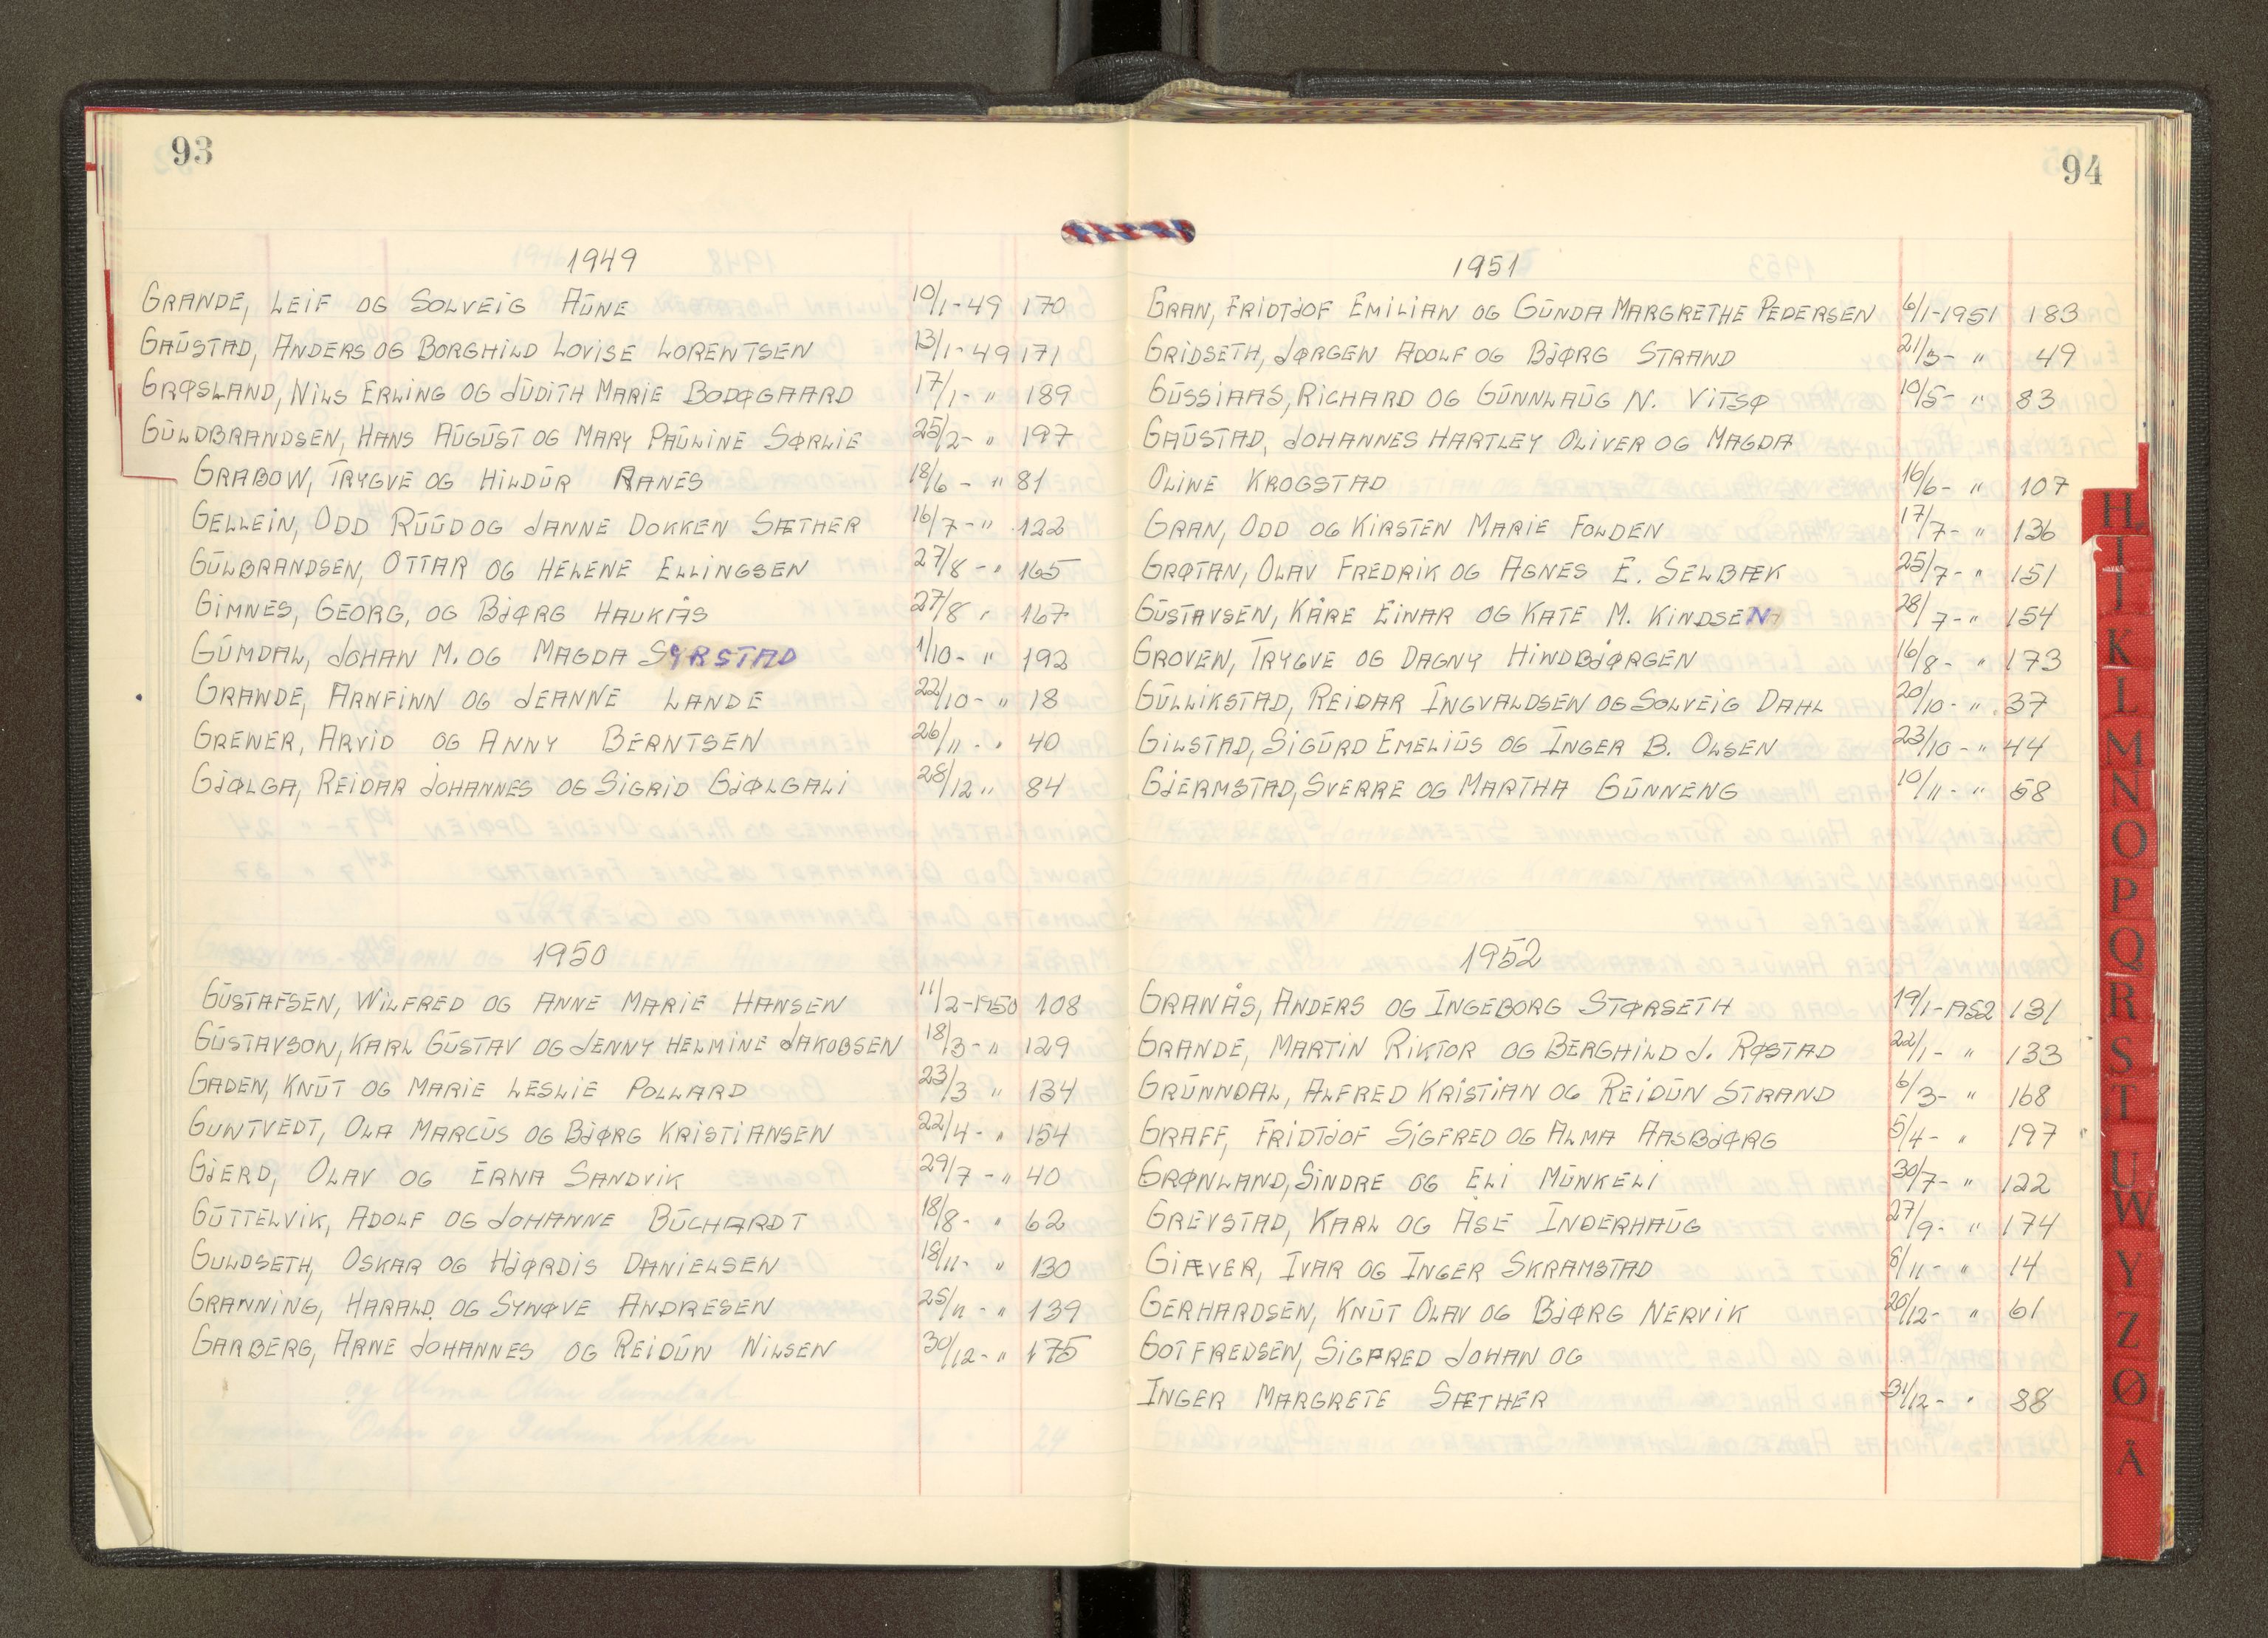 93
1949
GRANDE, LEIF OG SOLVEIG AUNE 10/1-49 170
GAUSTAD, ANDERS OG BORGHILD LOVISE LORENTSEN 13/1-49 171
GRØSLAND, NILS ERLING OG JUDITH MARIE BODØGAARD 17/1- " 189
GULDBRANDSEN, HANS AUGUST OG MARY PAULINE SØRLIE 25/2- " 197
GRABOW, TRYGVE OG HILDUR AANES 18/6 - " 81
GELLEIN, ODD RUUD OG JANNE DOKKEN SÆTHER 16/7-" 122
GULBRANDSEN, OTTAR OG HELENE ELLINGSEN 27/8 - " 165
GIMNES, GEORG, OG BJØRG HAUKÅS 27/8 " 167
GUMDAL, JOHAN M. OG MAGDA SYRSTAD 1/10- " 192
GRANDE, ARNFINN OG JEANNE LANDE 22/10- " 18
GREWER, ARVID OG ANNY BERNTSEN 26/11 - " 40
GJØLGA, REIDAR JOHANNES OG SIGRID GJØLGALI 28/12 " 84
1950
GUSTAFSEN, WILFRED OG ANNE MARIE HANSEN 11/2-1950 108
GUSTAVSON, KARL GUSTAV OG JENNY HELMINE JAKOBSEN 18/3- " 129
GADEN, KNUT OG MARIE LESLIE POLLARD 23/3 " 134
GUNTVEDT, OLA MARCUS OG BJØRG KRISTIANSEN 22/4- " 154
GJERD, OLAV OG ERNA SANDVIK 29/7 - " 40
GUTTELVIK, ADOLF OG JOHANNE BUCHARDT 18/8- " 62
GULDSETH, OSKAR OG HJØRDIS DANIELSEN 18/11- " 130
GRANNING, HARALD OG SYNØVE ANDRESEN 25/11 - " 139
GARBERG, ARNE JOHANNES OG REIDUN NILSEN 30/12- " 175
94
1951
GRAN, FRIDTJOF EMILIAN OG GUNDA MARGRETHE PEDERSEN 6/1-1951 183
GRIDSETH, JØRGEN ADOLF OG BJØRG STRAND 21/3- " 49
GUSSIAAS, RICHARD OG GUNNLAUG N. VITSØ 10/5- " 83
GAUSTAD, JOHANNES HARTLEY OLIVER OG MAGDA
OLINE KROGSTAD 16/6- " 107
GRAN, ODD OG KIRSTEN MARIE FOLDEN 17/7- " 136
GRØTAN, OLAV FREDRIK OG AGNES E. SELBÆK 25/7- " 151
GUSTAVSEN, KÅRE EINAR OG KATE M. KINDSEN 28/7-" 154
GROVEN, TRYGVE OG DAGNY HINDBJØRGEN 16/8- " 173
GULLIKSTAD, REIDAR INGVALDSEN OG SOLVEIG DAHL 20/10- " 37
GILSTAD, SIGURD EMELIUS OG INGER B. OLSEN 23/10 - " 44
GJERMSTAD, SVERRE OG MARTHA GUNNENG 10/11- " 58
1952
GRANÅS, ANDERS OG INGEBORG STØRSETH 19/1-1952 131
GRANDE, MARTIN RIKTOR OG BERGHILD J. RØSTAD 22/1- " 133
GRUNNDAL, ALFRED KRISTIAN OG REIDUN STRAND 6/3- " 168
GRAFF, FRIDTJOF SIGFRED OG ALMA AASBJØRG 5/4- " 197
GRØNLAND, SINDRE OG ELI MUNKELI 30/7- " 122
GREVSTAD, KARL OG ÅSE INDERHAUG 27/9- " 174
GIÆVER, IVAR OG INGER SKRAMSTAD 8/11- " 14
GERHARDSEN, KNUT OLAV OG BJØRG NERVIK 20/12- " 61
GOTFREDSEN, SIGFRED JOHAN OG
INGER MARGRETE SÆTHER 31/12- " 88
H
I
J
K
L
M
N
O
P
Q
R
S
T
U
W
Y
Z
Ø
Å